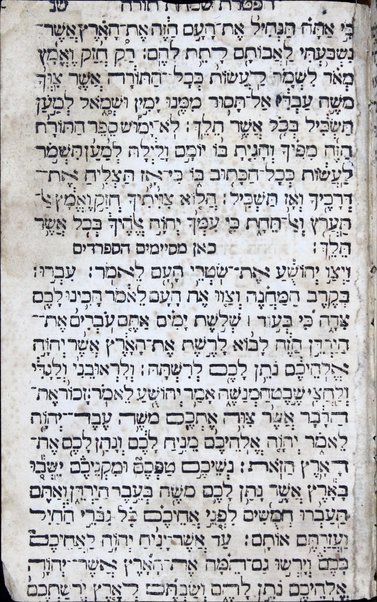 הפטרת שמחת תורה שנ
כִּי אַתָּה תַּנְחִיל אֶת־הָעָם הַזֶּה אֶת־הָאָרֶץ אֲשֶׁר־
נִשְׁבַּעְתִּי לַאֲבוֹתָם לָתֵת לָהֶם: רַק חֲזַק וֶאֱמַץ
מְאֹד לִשְׁמֹר לַעֲשׂוֹת כְּכָל־הַתּוֹרָה אֲשֶׁר צִוְּךָ
מֹשֶׁה עַבְדִּי אַל־תָּסוּר מִמֶּנּוּ יָמִין וּשְׂמֹאל לְמַעַן
תַּשְׂכִּיל בְּכֹל אֲשֶׁר תֵּלֵךְ: לֹא־יָמוּשׁ סֵפֶר הַתּוֹרָה
הַזֶּה מִפִּיךָ וְהָגִיתָ בּוֹ יוֹמָם וָלַיְלָה לְמַעַן תִּשְׁמֹר
לַעֲשׂוֹת כְּכָל־הַכָּתוּב בּוֹ כִּי־אָז תַּצְלִיחַ אֶת־
דְּרָכֶיךָ וְאָז תַּשְׂכִּיל: הֲלוֹא צִוִּיתִיךָ חֲזַק וֶאֱמָץ אַל־
תַּעֲרֹץ וְאַל־תֵּחָת כִּי עִמְּךָ יְהוָה אֱלֹהֶיךָ בְּכֹל אֲשֶׁר
תֵּלֵךְ: כאן מסיימים הספרדים
וַיְצַו יְהוֹשֻׁעַ אֶת־שֹׁטְרֵי הָעָם לֵאמֹר: עִבְרוּ׀
בְּקֶרֶב הַמַּחֲנֶה וְצַוּוּ אֶת הָעָם לֵאמֹר הָכִינוּ לָכֶם
צֵדָה כִּי בְּעוֹד ׀ שְׁלֹשֶׁת יָמִים אַתֶּם עֹבְרִים אֶת־
הַיַּרְדֵּן הַזֶּה לָבוֹא לָרֶשֶׁת אֶת־הָאָרֶץ אֲשֶׁר יְהוָה
אֱלֹהֵיכֶם נֹתֵן לָכֶם לְרִשְׁתָּהּ: וְלָראוּבֵנִי וְלַגָּדִי
וְלַחֲצִי שֵׁבֶט הַמְנַשֶּׁה אָמַר יְהוֹשֻׁעַ לֵאמֹר: זָכוֹר אֶת־
הַדָּבָר אֲשֶׁר צִוָּה אֶתְכֶם מֹשֶׁה עֶבֶד־יְהוָה
לֵאמֹר יְהוָה אֱלֹהֵיכֶם מֵנִיחַ לָכֶם וְנָתַן לָכֶם אֶת־
הָאָרֶץ הַזֹּאת: נְשֵׁיכֶם טַפְּכֶם וּמִקְנֵיכֶם יֵשְׁבוּ
בָּאָרֶץ אֲשֶׁר נָתַן לָכֶם מֹשֶׁה בְּעֵבֶר הַיַּרְדֵּן וְאַתֶּם
תַּעַבְרוּ חֲמֻשִׁים לִפְנֵי אֲחֵיכֶם כֹּל גִּבּוֹרֵי הַחַיִל
וַעֲזַרְתֶּם אוֹתָם: עַד אֲשֶׁר־יָנִיחַ יְהוָה לַאֲחֵיכֶם
כָּכֶם וְיָרְשׁוּ גַם־הֵמָּה אֶת־הָאָרֶץ אֲשֶׁר־יְהוָה
אֱלֹהֵיכֶם נֹתֵן לָהֶם וְשַׁבְתֶּם לְאֶרֶץ יְרֻשַּׁתְכֶם